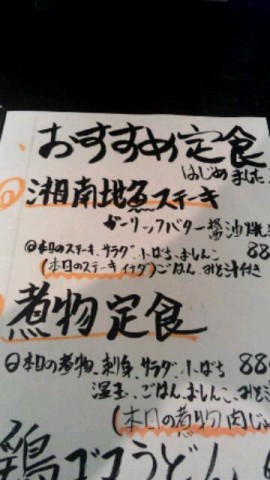 おすすめ定食
はじめました
湘南地魚ステーキ
ガーリックバター醤油焼き
本日のステーキ、サラダ、小ばち、おしんこ 88
(本日のステーキ イナダ) ごはん、みそ汁付き
煮物定食
本日の煮物、刺身、サラダ、小ばち 88
温玉、ごはん、おしんこ、みそ
(本日の煮物 肉じゃ
鶏ゴボうどん